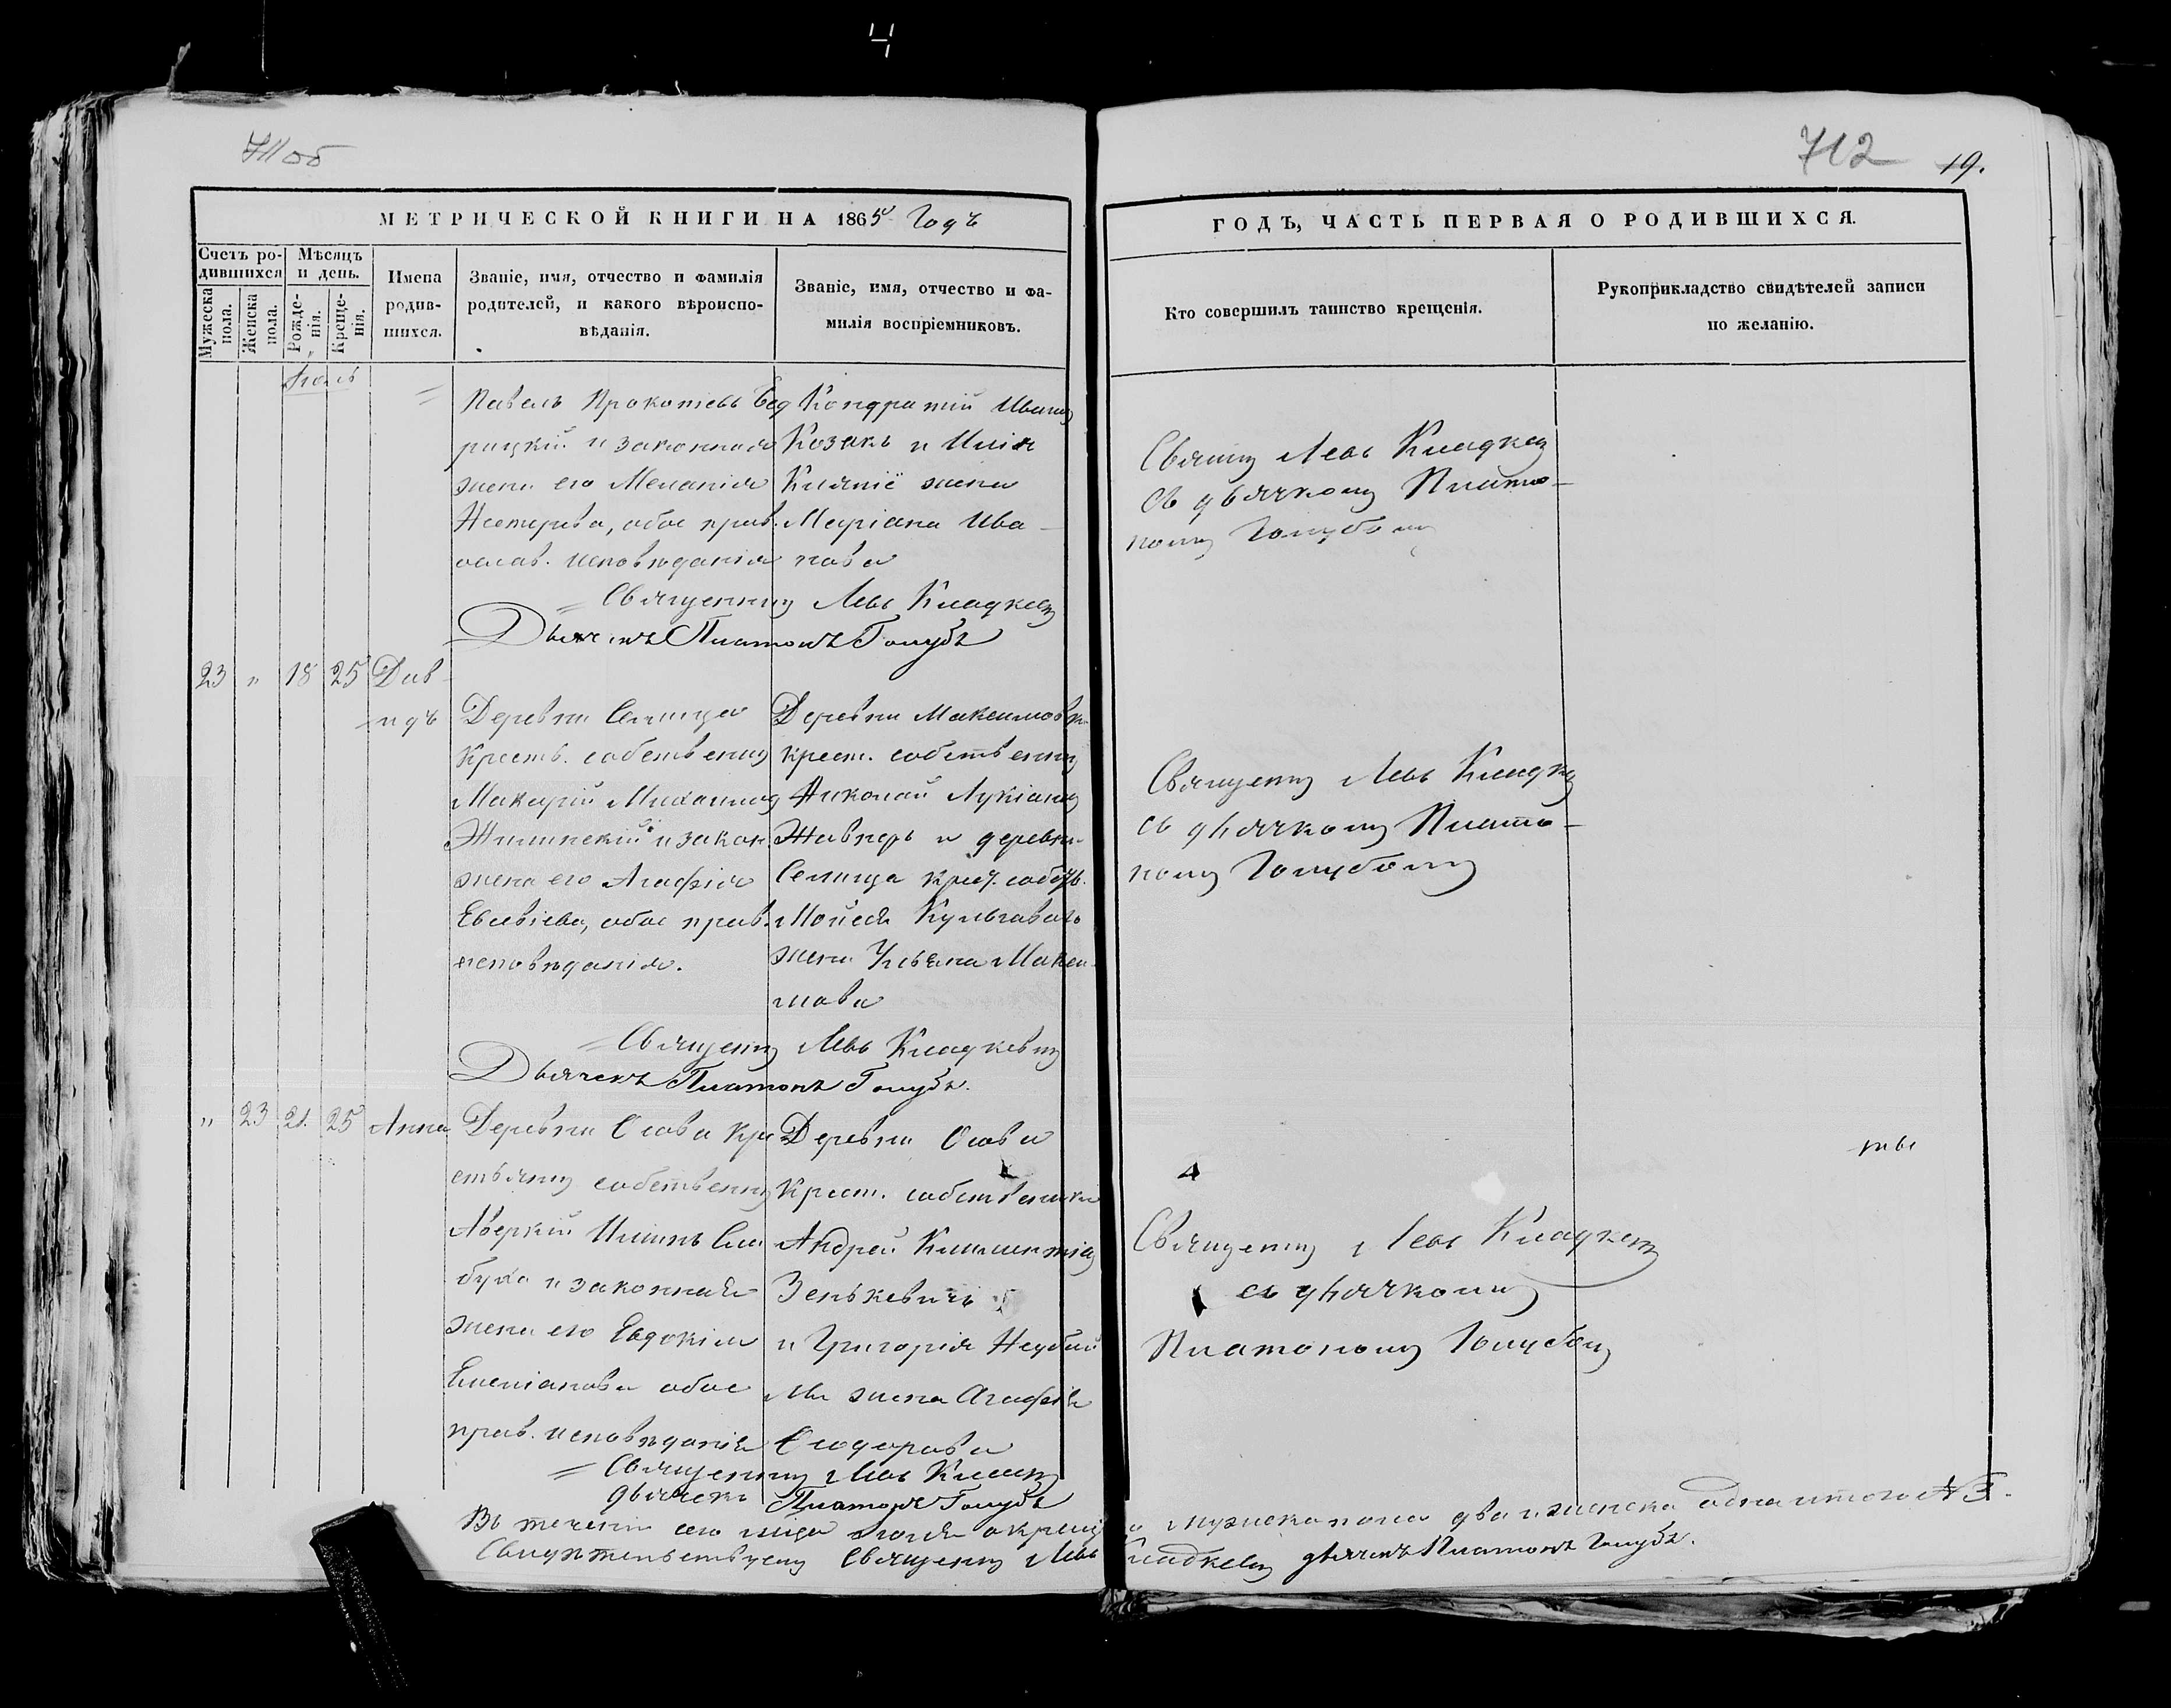 4
711 об
712 19.
МЕТРИЧЕСКОЙ КНИГИ НА 1865 Годъ
Счетъ ро-
дившихся
Мужеска
пола.
Женска
пола.
Мѣсяцъ
и день.
Рожде-
нія.
Креще-
нія.
Имена
родив-
шихся.
Званіе, имя, отчество и фамилія
родителей, и какого вѣроиспо-
вѣданія.
Званіе, имя, отчество и фа-
милія воспріемниковъ.
ГОДЪ, ЧАСТЬ ПЕРВАЯ О РОДИВШИХСЯ.
Кто совершилъ таинство крещенія.
Рукоприкладство свидѣтелей записи
по желанію.
Павелъ Прокопіевъ
и законная
жена его Меланія
Нестерова, обое прав.
ослав. исповѣданія
Кондратій Иванов
Козакъ и Иліи
жена
Маріана Ива-
нова
Священник Левъ Кладкев
Дьячекъ Платонъ Голубъ
Левъ Кладкев
съ дьячкомъ Плато-
номъ Голубомъ
23 " 18 25 Дав-
идъ
Деревни Селища
Крестъ. собственник
Макарій Михаилов
Жилинскій и закон.
жена его Агафія
Евсевіева, обое прав.
исповѣданія.
Деревни Максимовки
крест. собственник
Николай Лукіанов
Жавнеръ и деревни
Селища крест. собств.
Мойсея Кульгаваго
жена Ульяна Макси-
мова
Священник Левъ Кладкевич
Дьячекъ Платонъ Голубъ.
Священник Левъ Кладкев
съ дьячкомъ Плато-
номъ Голубомъ
" 23 21. 25 Анна
Деревни Осова кре
стьянин собственник
Аверкій Илиинъ
и законная
жена его Евдокія
Емеліанова обое
прав. исповѣданія
Деревни Осова
Крест. собственники
Андрей Климентіев
Зенькевичъ
и Григорія
жена Агафія
Ѳеодорова
Священник Левъ
дьячекъ Платонъ Голубъ
Священник Левъ Кладкев
съ дьячкомъ
Платономъ Голубом
Въ теченіи сего мца мужеска пола два и женска одна итого 3.
Свидѣтельствуем Священник Левъ Кладкевич дьячекъ Платонъ Голубъ.